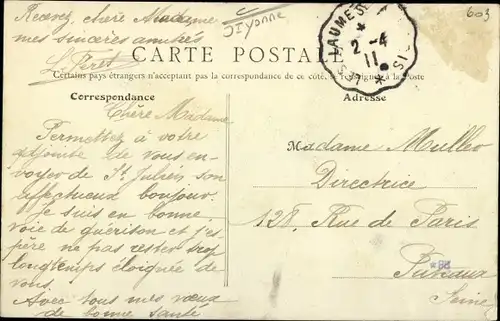 Recevez, chère Madame,
mes sincères amitiés
Yonne
603
CARTE POSTALE
Certains pays étrangers n'acceptant pas la correspondance de ce côté, se renseigner à la Poste
2-4
11
Correspondance
Adresse
Chère Madame
Permettez à votre
adjointe de vous en-
voyer de St Julien son
affectueux bonjour.
Je suis en bonne
voie de guérison et j'es
père ne pas rester trop
longtemps éloignée de
vous.
Avec tous mes vœux
de bonne santé
Madame Muller
Directrice
128, Rue de Paris
Puteaux
*88
Seine